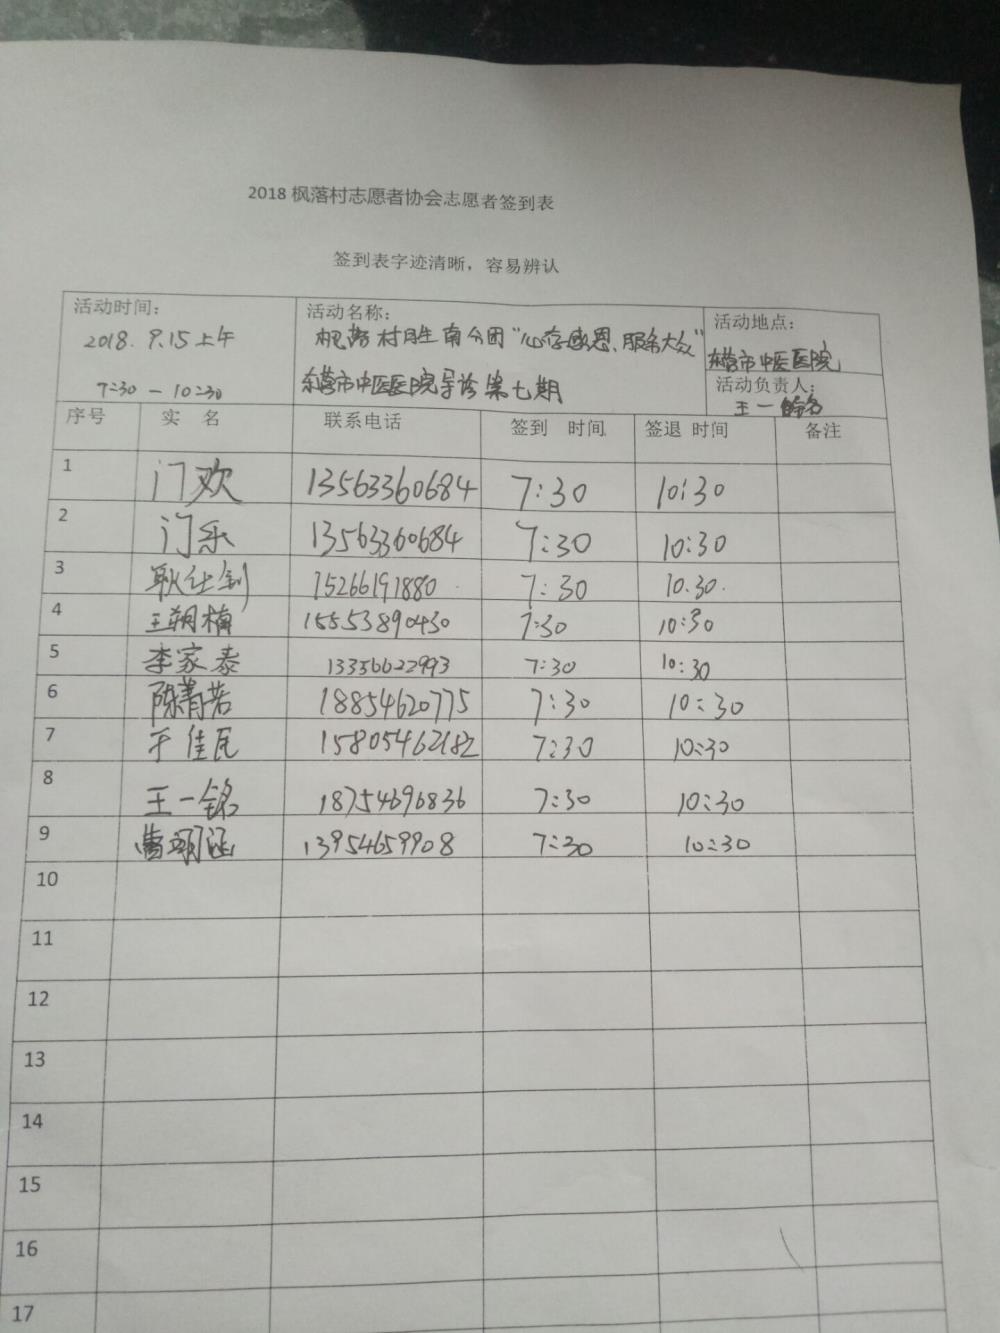 2018 枫落村志愿者协会志愿者签到表
签到表字迹清晰，容易辨认
活动时间：
2018. 9.15 上午
7:30 — 10:30
活动名称：
枫落村胜南分团“心存感恩、服务大众”
东营市中医医院导诊第七期
活动地点：
东营市中医医院
活动负责人：
王一铭
序号 实 名 联系电话 签到 时间 签退 时间 备注
1 门欢 13563360684 7:30 10:30
2 门乐 13563360684 7:30 10:30
3 耿仕钊 15266191880 7:30 10.30.
4 王朔楠 15553890430 7:30 10:30
5 李家泰 13356622993 7:30 10:30
6 陈菁若 18854620775 7:30 10:30
7 于佳民 15805462182 7:30 10:30
8 王一铭 18754696836 7:30 10:30
9 曹翊涵 13954659908 7:30 10:30
10
11
12
13
14
15
16
17